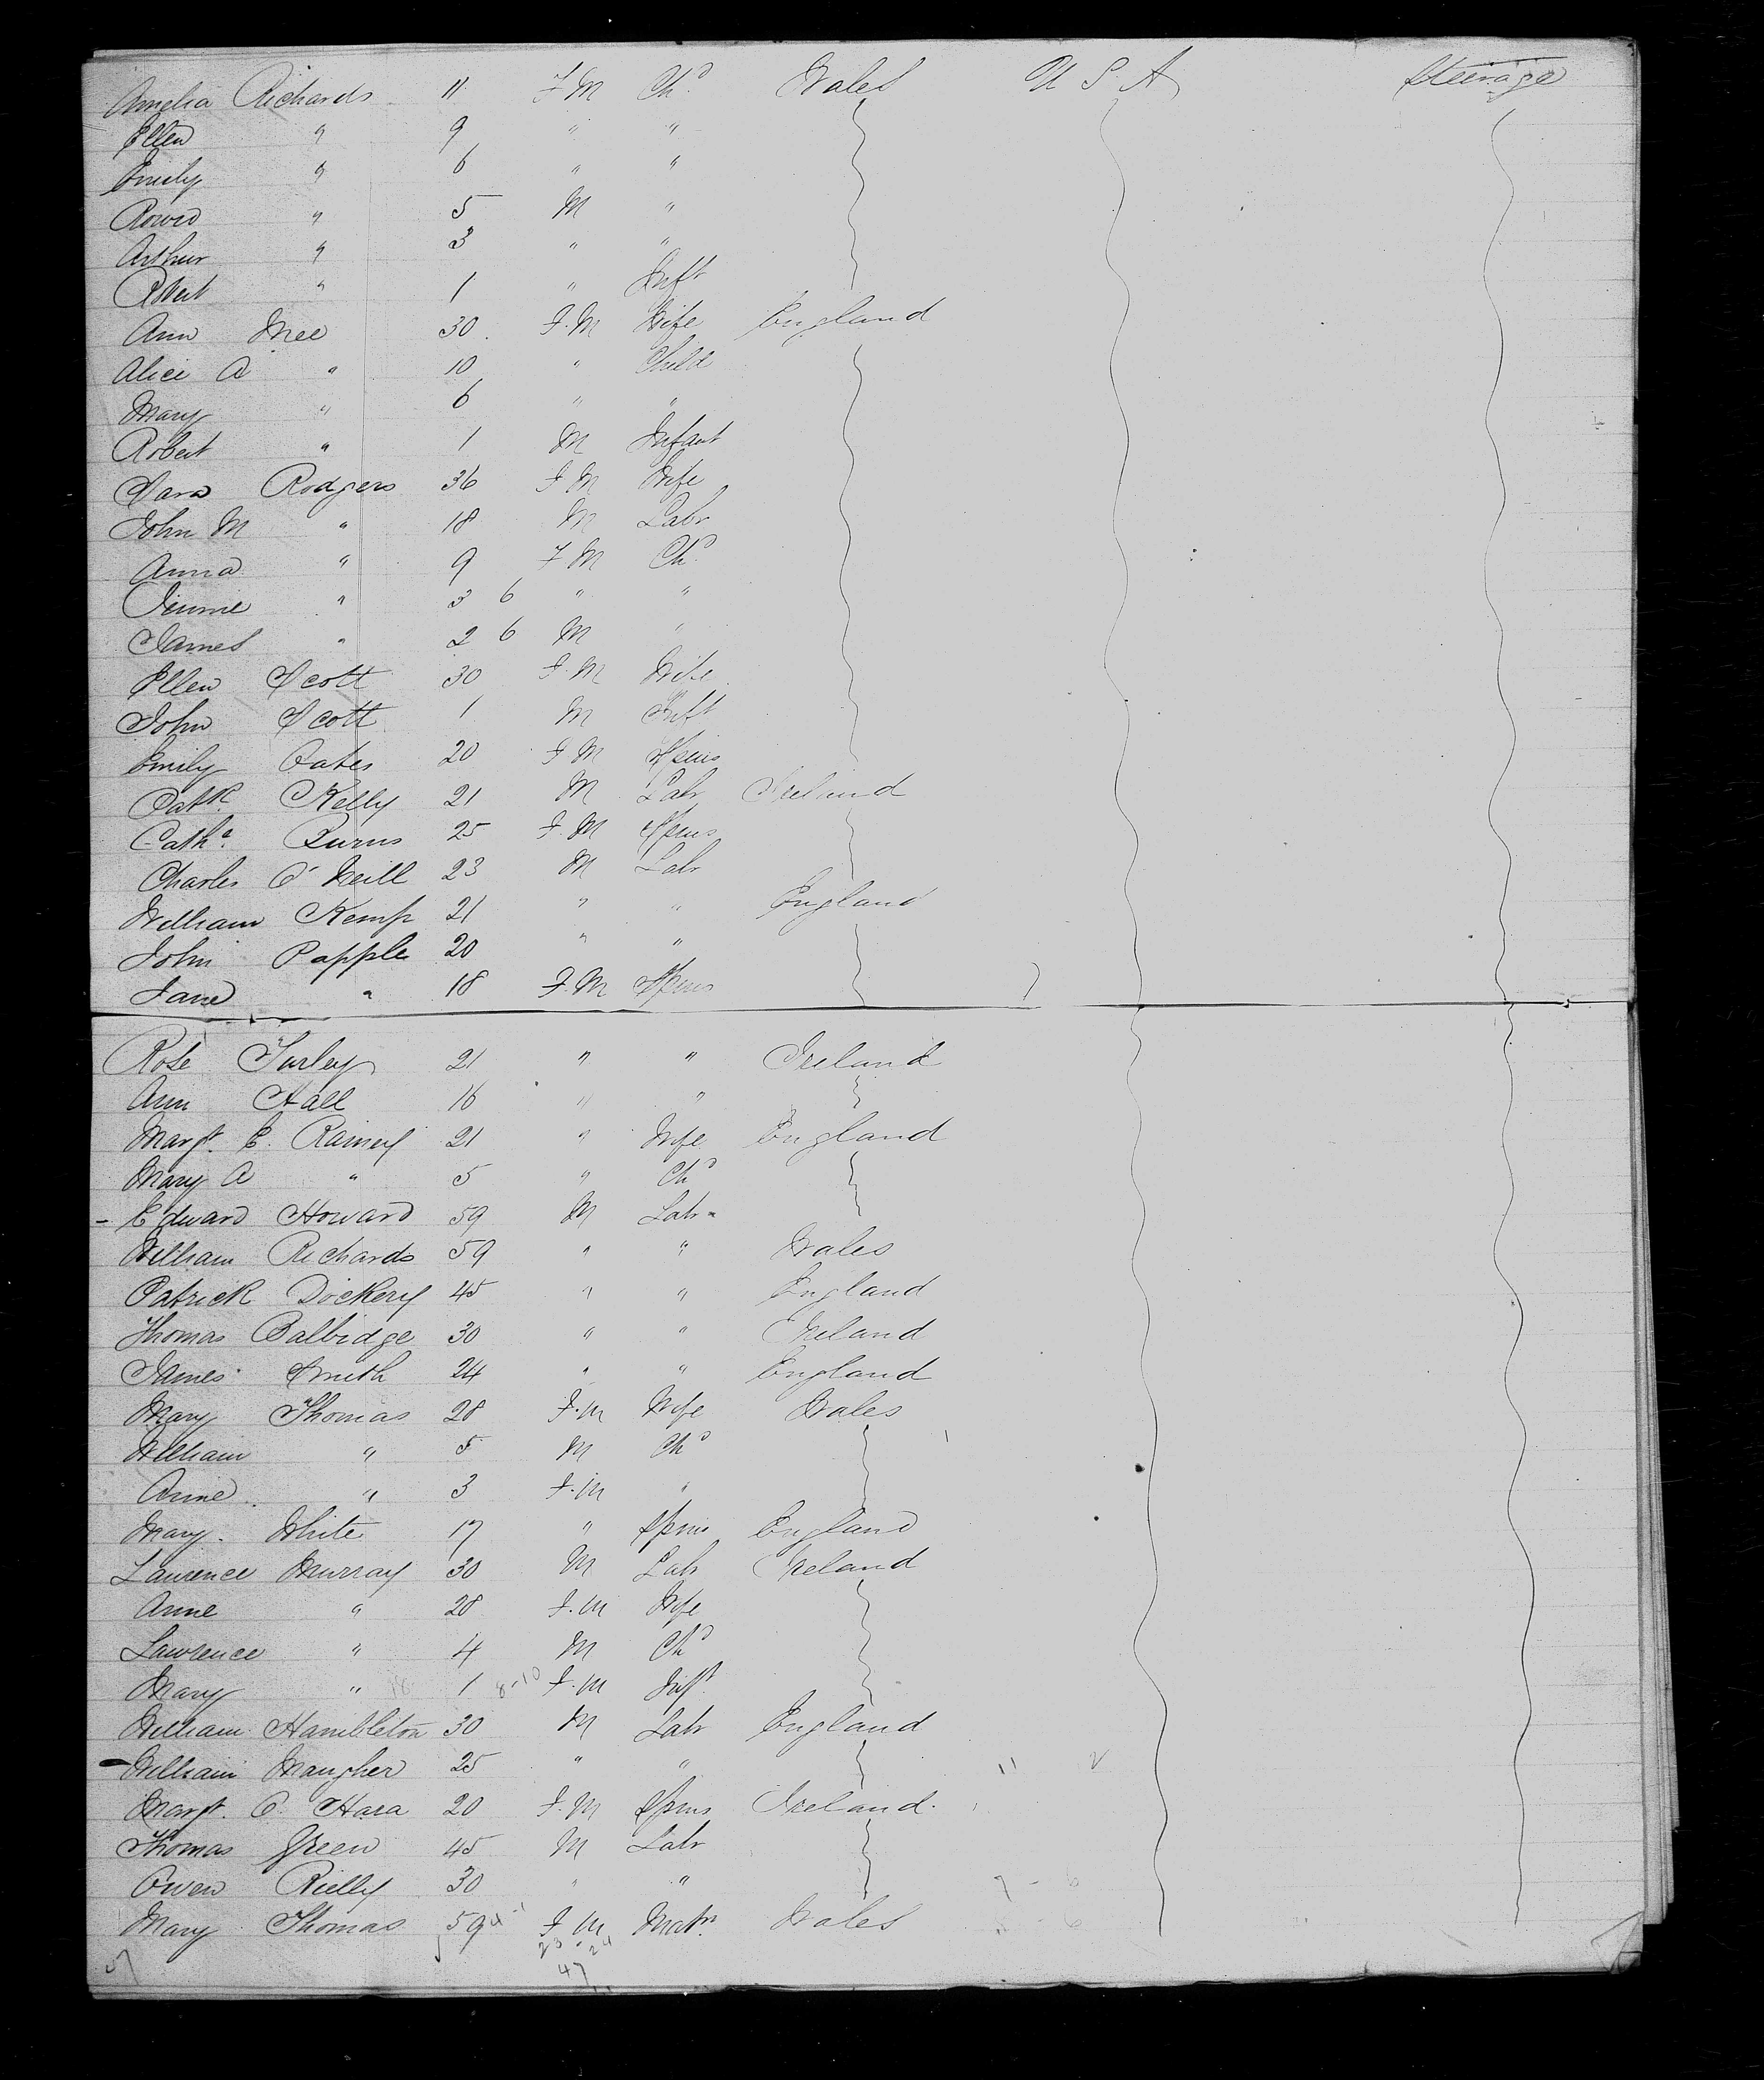 Amelia Richards 11 F M Ch^d Wales U S A Steerage
Ellen " 9 " "
Emily " 6 " "
" 5 M "
Arthur " 3 " "
Robert " 1 " Inft
Ann Mee 30 F. M Wife England
Alice A " 10 " Child
Mary " 6 " "
Robert " 1 M Infant
Sara Rodgers 36 F M Wife
John M " 18 M Labr
Anna " 9 F M Ch^d
Jennie " 3 6 " "
James " 2 6 M "
Ellen Scott 30 F. M Wife
John Scott 1 M Inft
Emily Oates 20 F M Spins
Patk. Kelly 21 M Labr Ireland
Cath^e. Burns 25 F. M Spins
Charles O'Neill 23 M Labr
William Kemp 21 " " England
John Papple 20 " "
Jane " 18 F. M Spins
Rose Turley 21 " " Ireland
Ann Hall 16 " "
Margt. E. Rainey 21 " Wife England
Mary A " 5 " Ch^d
- Edward Howard 59 M Labr
William Richards 59 " " Wales
Patrick Dockery 45 " " England
Thomas Balbidge 30 " " Ireland
James Smith 24 " " England
Mary Thomas 28 F. M Wife Wales
William " 5 M Ch^d
Anne " 3 F. M "
Mary White 17 " Spins England
Laurence Murray 30 M Labr Ireland
Anne " 28 F. M Wife
Lawrence " 4 M Ch^d
Mary " 1 8-10 F. M Inft
William Hambleton 30 M Labr England
- William Maugher 25 " " 11 2
Margt. O. Hara 20 F. M Spins Ireland
Thomas Green 45 M Labr
Owen Rielly 30 " " 7 - 6
Mary Thomas 59 F M Matn. Wales 6
23 - 24
47